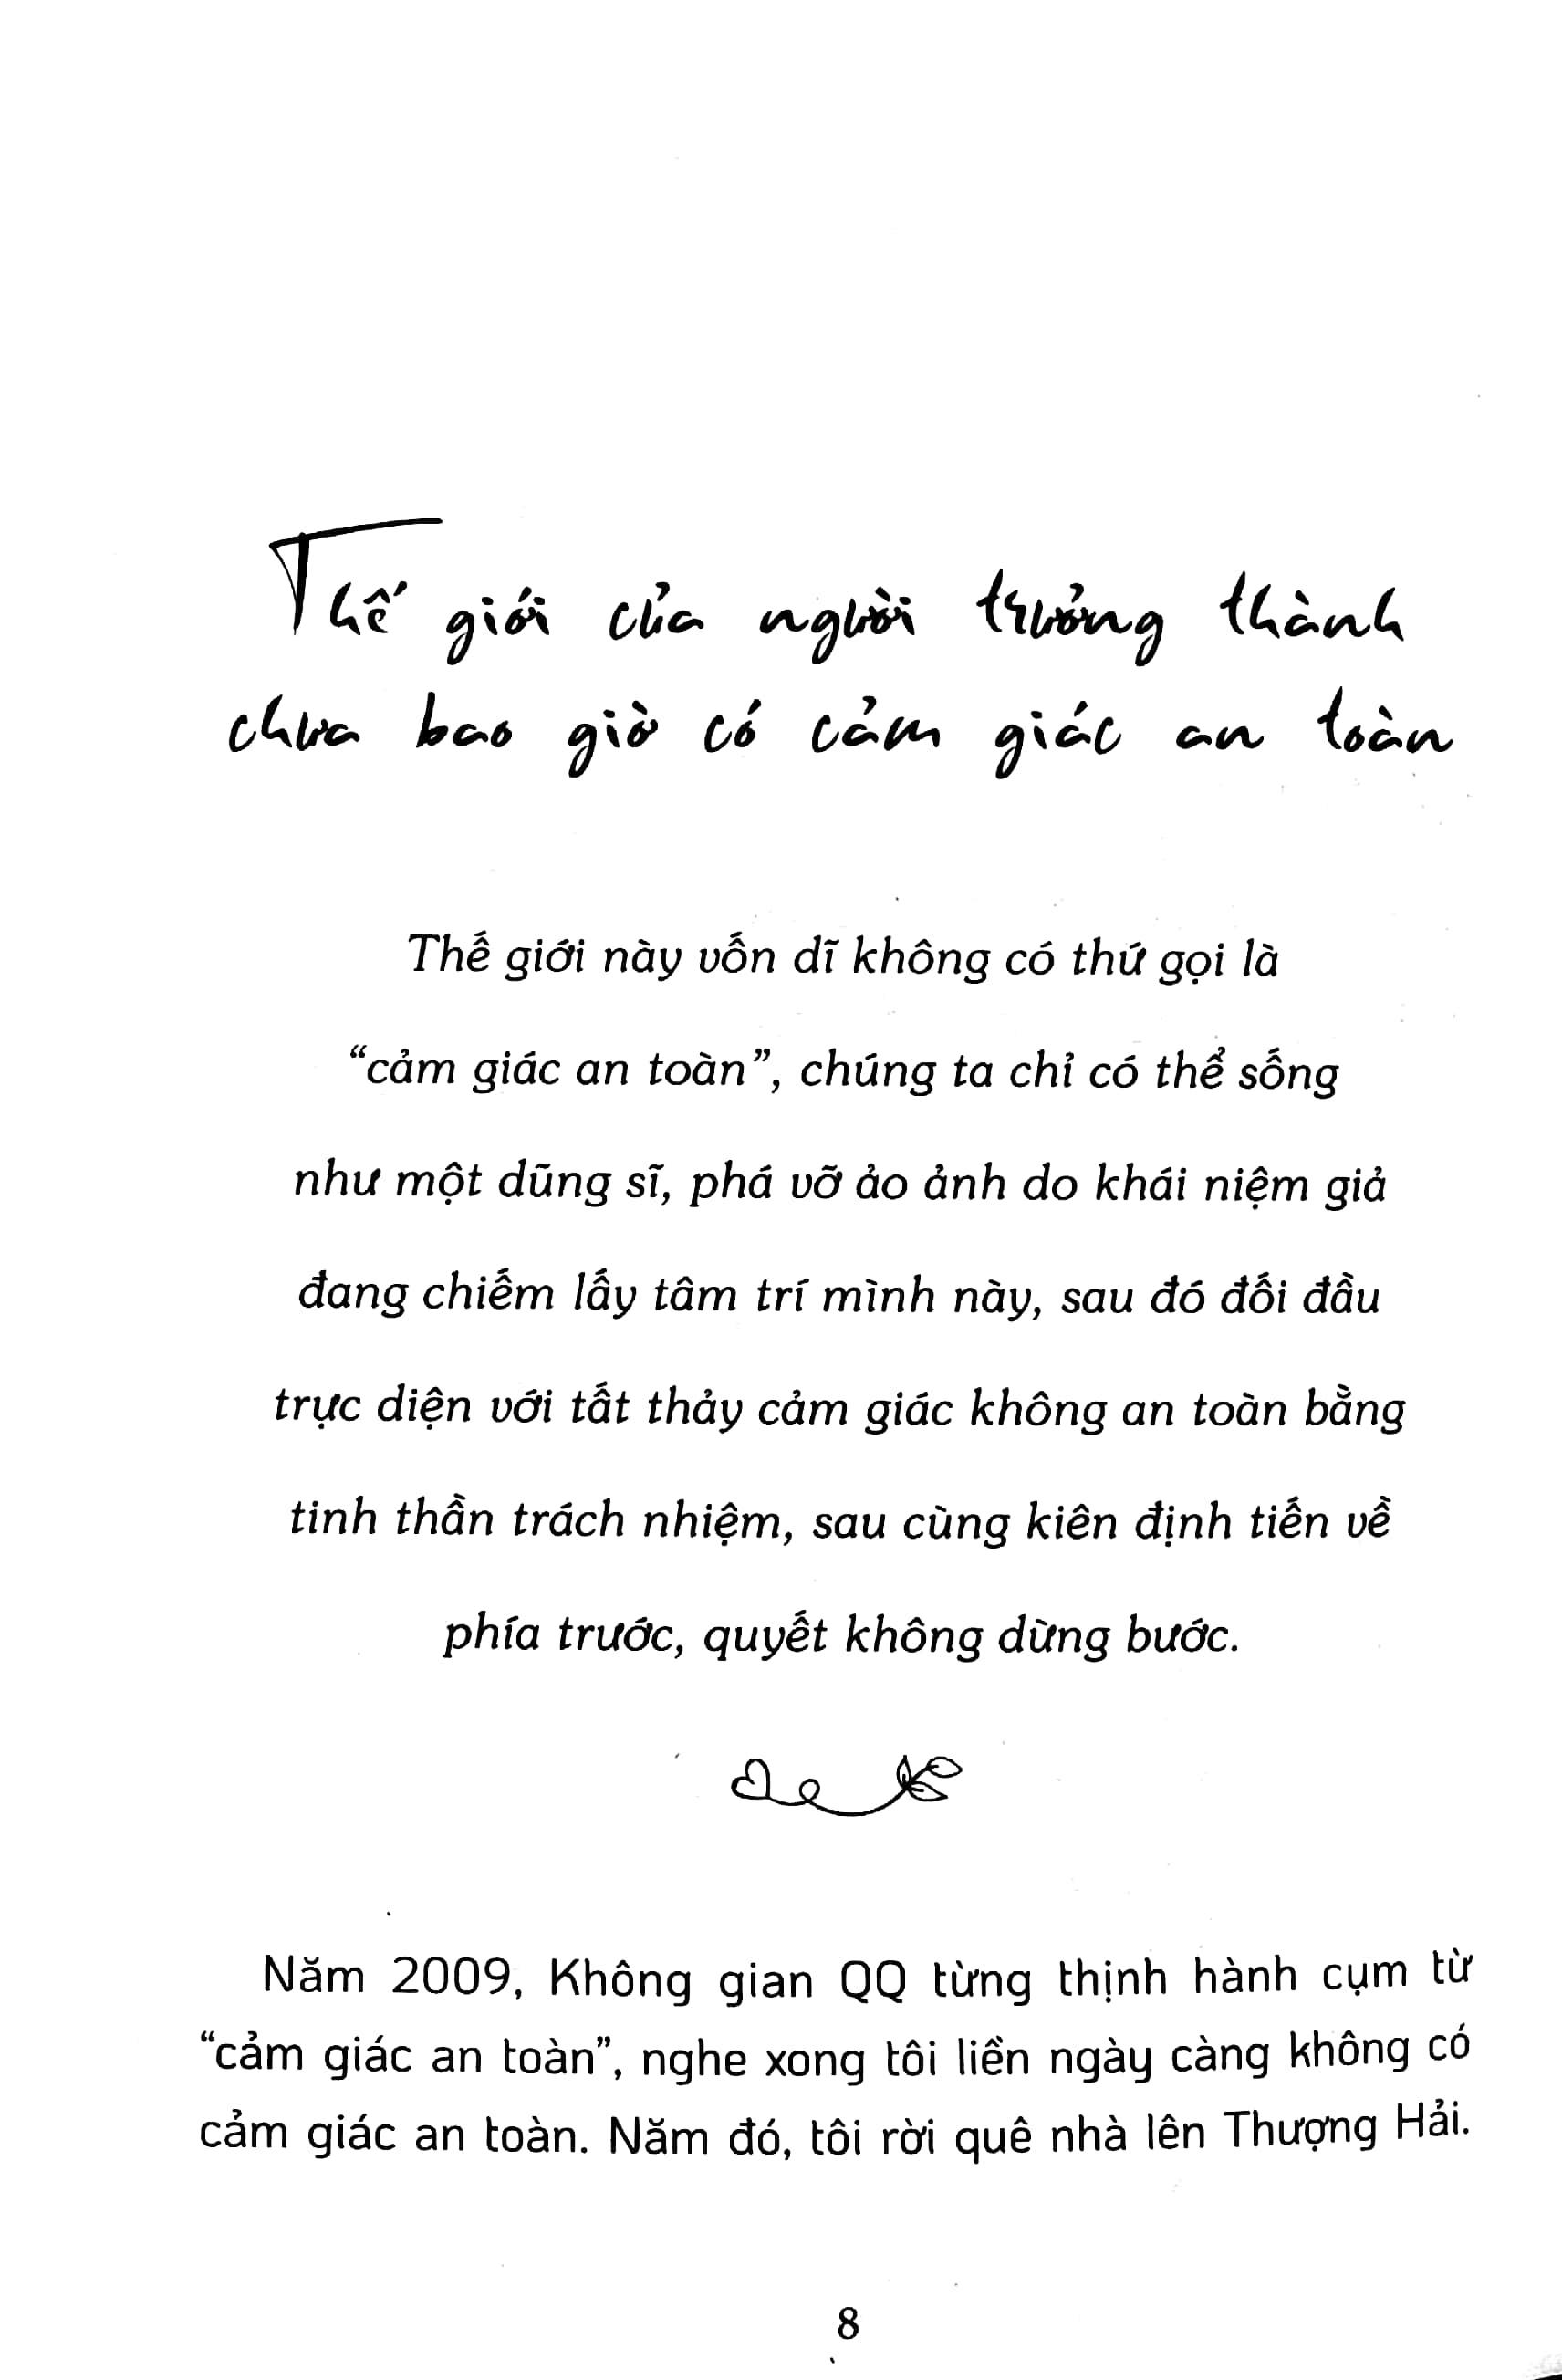 Thế giới của người trưởng thành
chưa bao giờ có cảm giác an toàn
Thế giới này vốn dĩ không có thứ gọi là
“cảm giác an toàn”, chúng ta chỉ có thể sống
như một dũng sĩ, phá vỡ ảo ảnh do khái niệm giả
đang chiếm lấy tâm trí mình này, sau đó đối đầu
trực diện với tất thảy cảm giác không an toàn bằng
tinh thần trách nhiệm, sau cùng kiên định tiến về
phía trước, quyết không dừng bước.
Năm 2009, Không gian QQ từng thịnh hành cụm từ
“cảm giác an toàn”, nghe xong tôi liền ngày càng không có
cảm giác an toàn. Năm đó, tôi rời quê nhà lên Thượng Hải.
8